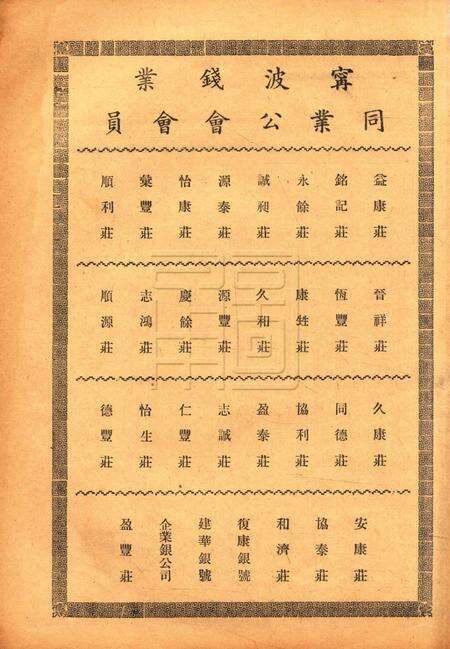 寗波錢業
同業公會會員
益康莊
銘記莊
永餘莊
誠昶莊
源泰莊
怡康莊
彙豐莊
順利莊
晉祥莊
恆豐莊
康甡莊
久和莊
源豐莊
慶餘莊
志鴻莊
順源莊
久康莊
同德莊
協利莊
盈泰莊
志誠莊
仁豐莊
怡生莊
德豐莊
安康莊
協泰莊
和濟莊
復康銀號
建華銀號
企業銀公司
盈豐莊